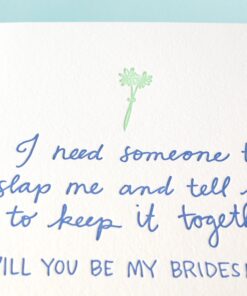 I need someone t
slap me and tell
to keep it togeth
ILL YOU BE MY BRIDES